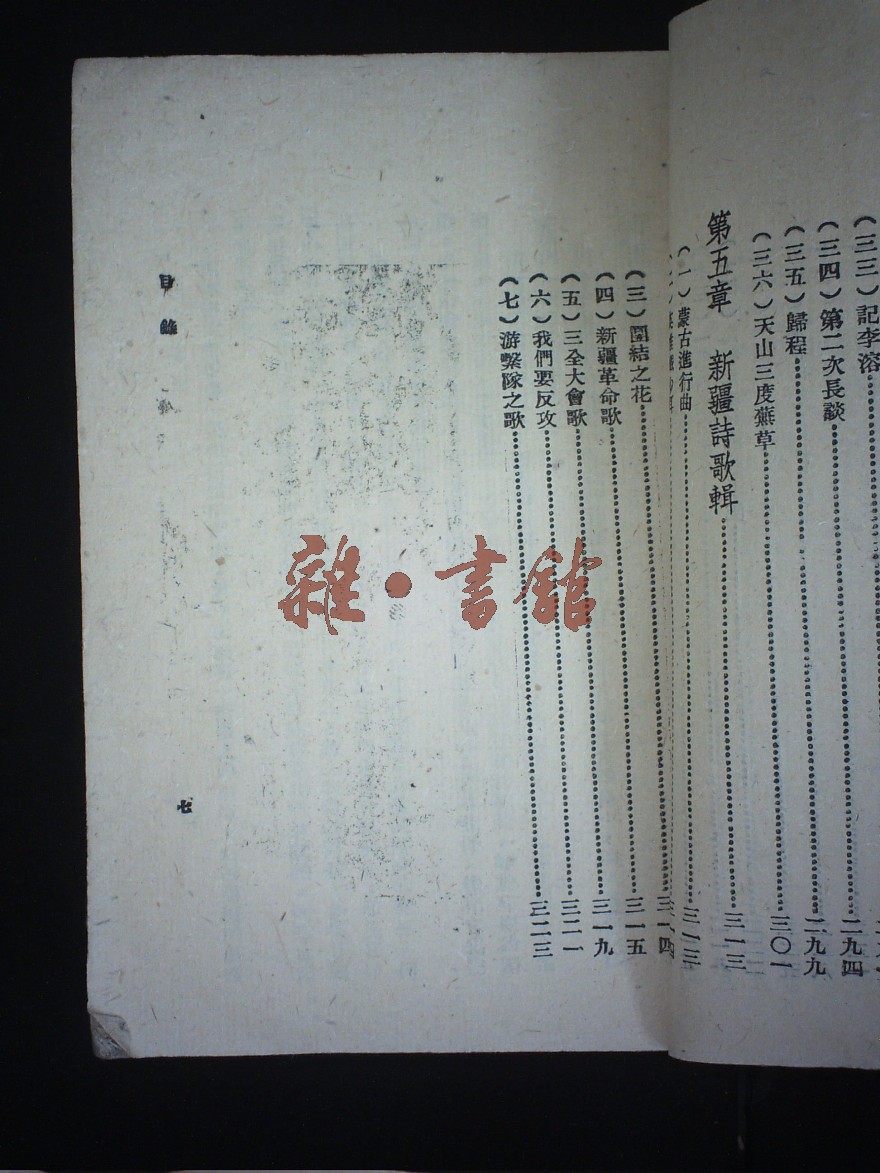 （三三）記李溶
（三四）第二次長談……二九四
（三五）歸程……二九九
（三六）天山三度蕪草……三〇一
第五章 新疆詩歌輯……三一三
（一）蒙古進行曲……三一三
三一四
（三）團結之花……三一五
（四）新疆革命歌……三一九
（五）三全大會歌……三二一
（六）我們要反攻
（七）游擊隊之歌……三二三
目錄
七
雜·書館